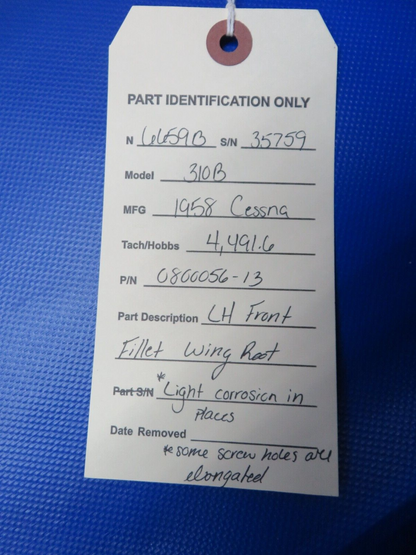 PART IDENTIFICATION ONLY
N 6659B S/N 35759
Model 310B
MFG 1958 Cessna
Tach/Hobbs 4,491.6
P/N 0800056-13
Part Description LH Front
Fillet Wing Root
Part S/N *Light corrosion in
places
Date Removed
*some screw holes are
elongated